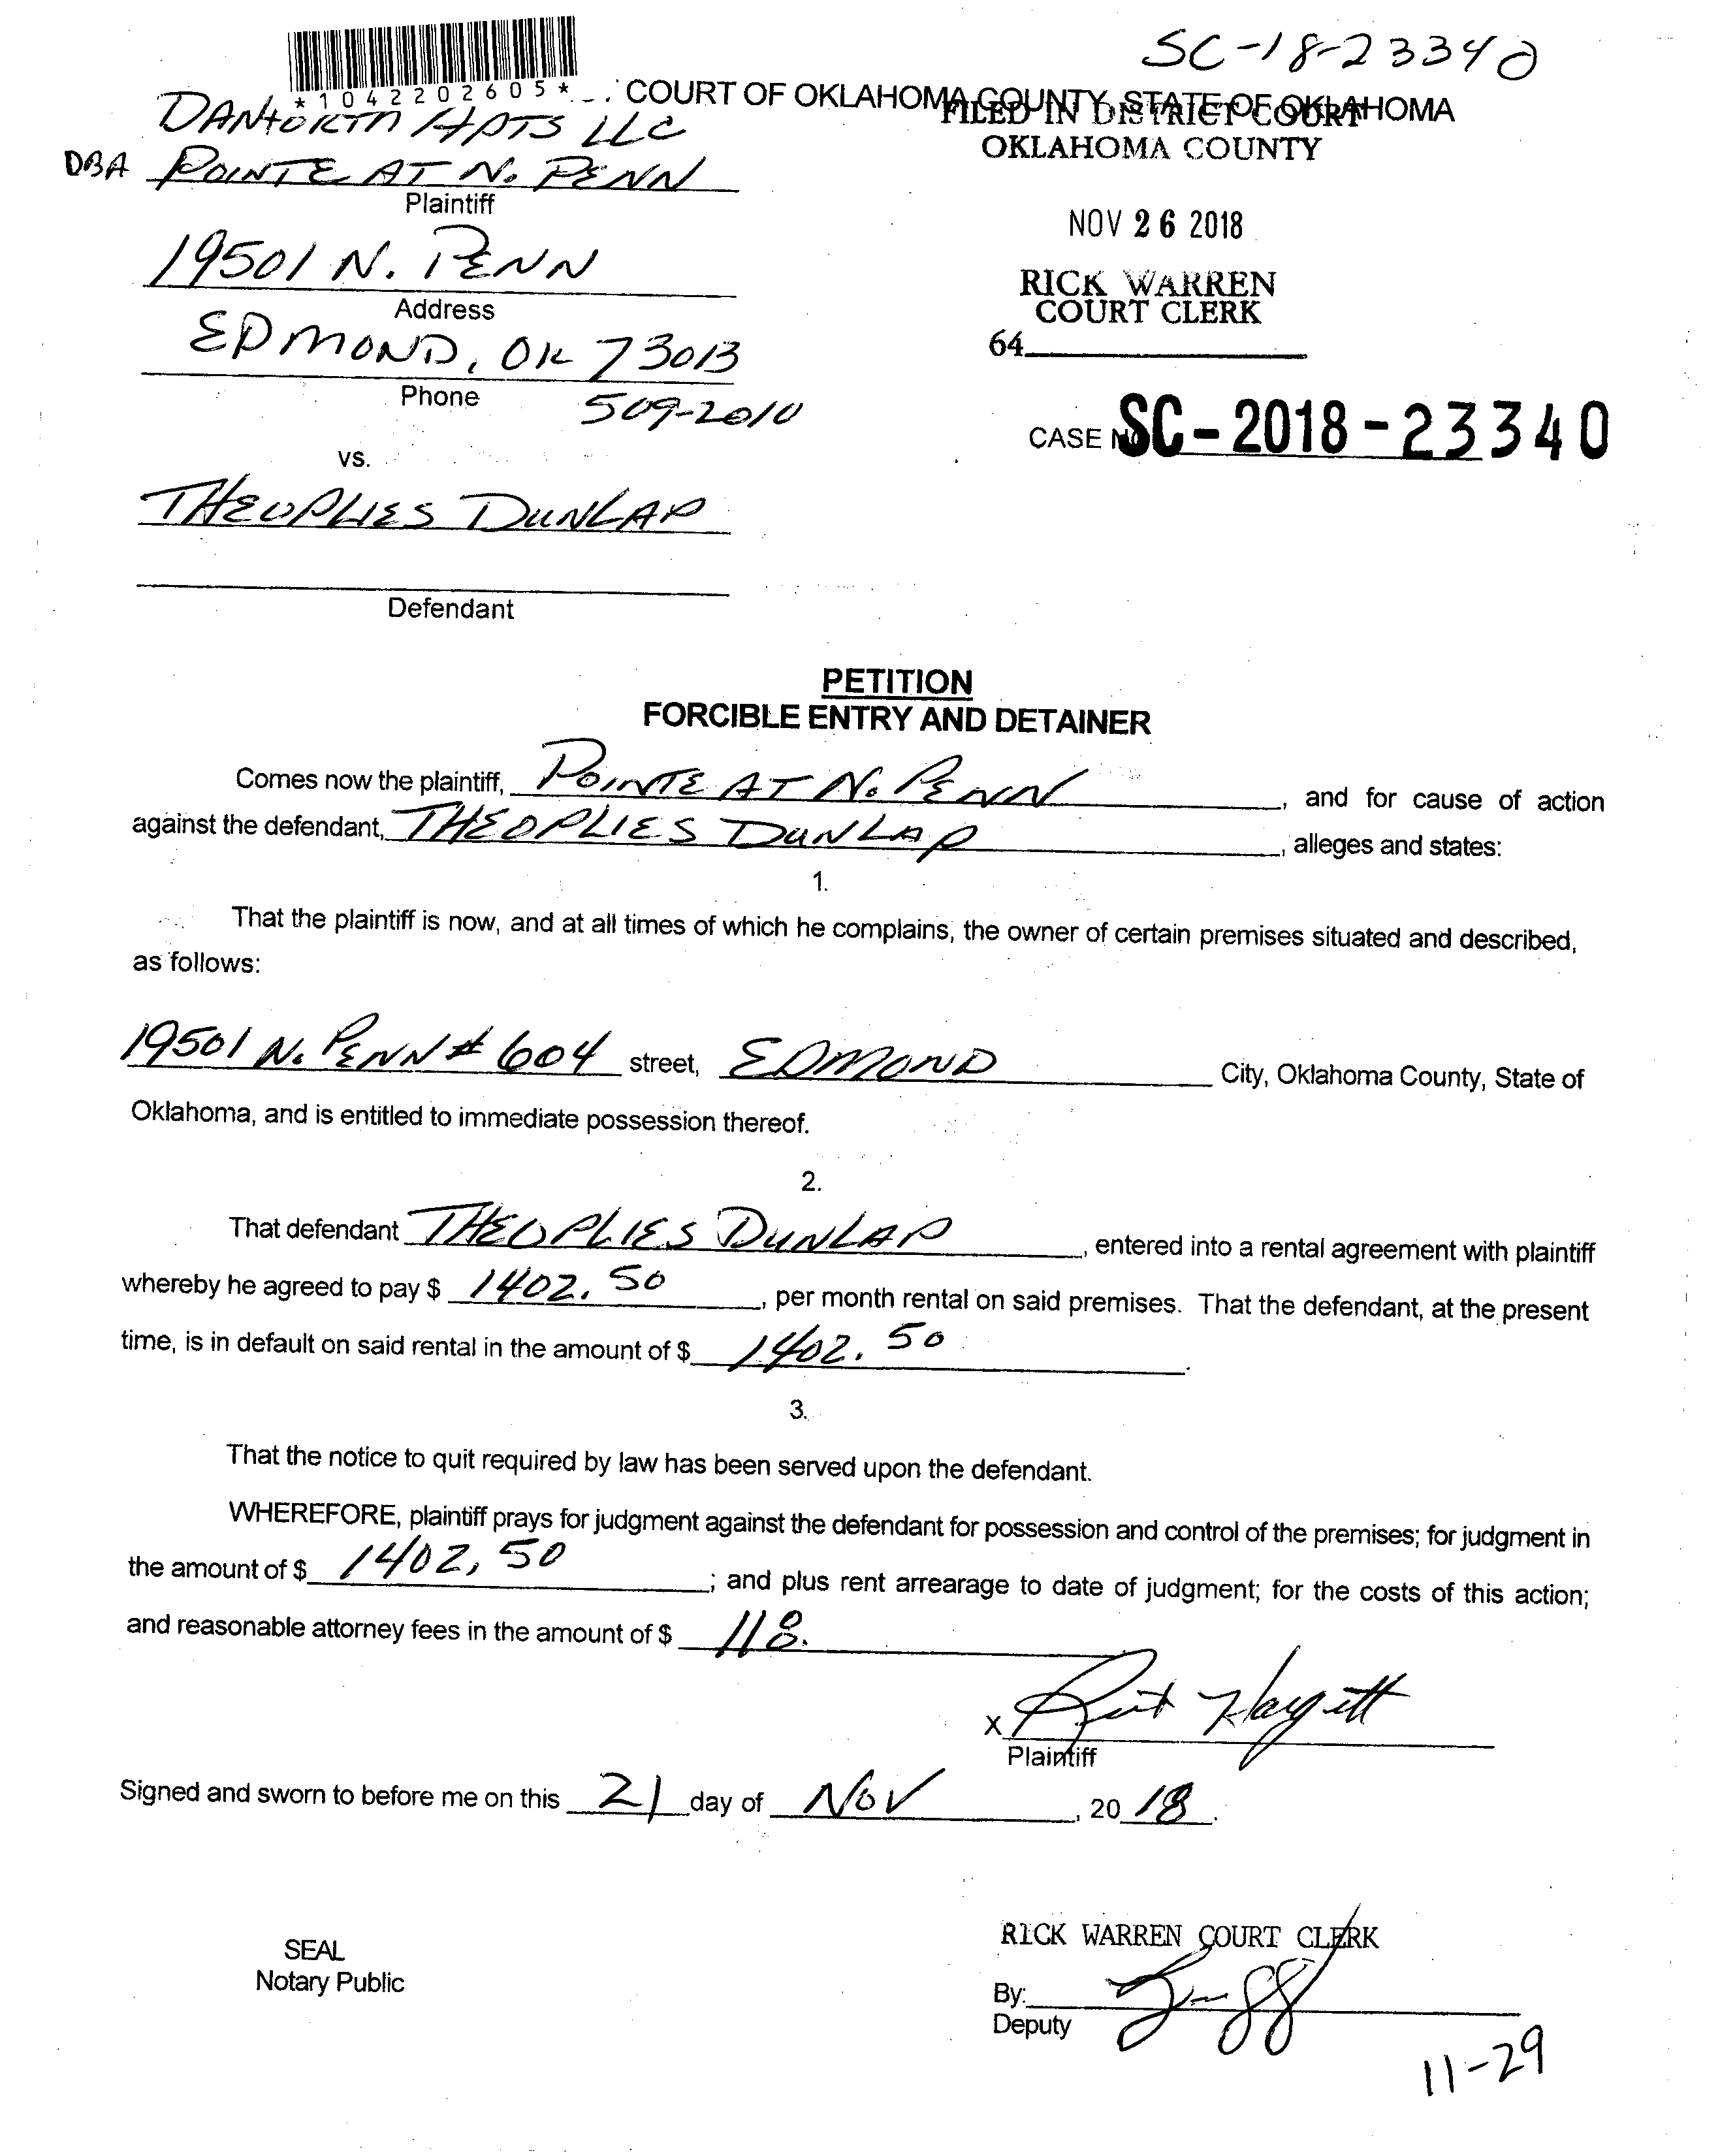 SC-18-23340
*1042202605*
COURT OF OKLAHOMA COUNTY, STATE OF OKLAHOMA
FILED IN DISTRICT COURT
OKLAHOMA COUNTY
DANFORTH APTS LLC
DBA POINTE AT N. PENN
Plaintiff
NOV 26 2018
19501 N. PENN
Address
RICK WARREN
COURT CLERK
64
EDMOND, OK 73013
Phone 509-2010
CASE NO. SC-2018-23340
vs.
THEOPLIES DUNLAP
Defendant
PETITION
FORCIBLE ENTRY AND DETAINER
Comes now the plaintiff, POINTE AT N. PENN, and for cause of action
against the defendant, THEOPLIES DUNLAP, alleges and states:
1.
That the plaintiff is now, and at all times of which he complains, the owner of certain premises situated and described,
as follows:
19501 N. PENN # 604 street, EDMOND City, Oklahoma County, State of
Oklahoma, and is entitled to immediate possession thereof.
2.
That defendant THEOPLIES DUNLAP, entered into a rental agreement with plaintiff
whereby he agreed to pay $ 1402.50, per month rental on said premises. That the defendant, at the present
time, is in default on said rental in the amount of $ 1402.50.
3.
That the notice to quit required by law has been served upon the defendant.
WHEREFORE, plaintiff prays for judgment against the defendant for possession and control of the premises; for judgment in
the amount of $ 1402,50; and plus rent arrearage to date of judgment; for the costs of this action;
and reasonable attorney fees in the amount of $ 118.
X
Plaintiff
Signed and sworn to before me on this 21 day of NOV, 2018.
RICK WARREN COURT CLERK
SEAL
Notary Public
By:
Deputy
11-29